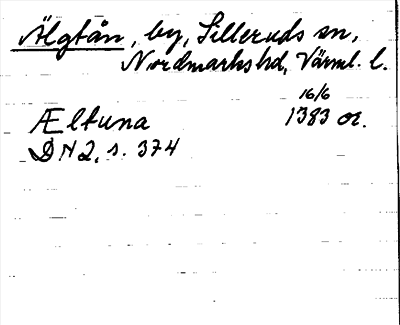 Älgtån, by, Silleruds sn,
Nordmarks hd, Värml. l.
16/6
Æltuna 1383 or.
DN 2, s. 374